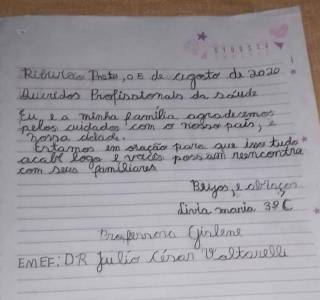 Ribeirão Preto, 05 de agosto de 2020
Queridos Profissionais da saúde
Eu, e a minha família agradecemos
pelos cuidados com o nosso país, e
nossa cidade.
Estamos em oração para que isso tudo
acabe logo e vocês possam reencontra
com seus familiares
Beijos, e abraços
Lívia maria 3º C
Professora Gislene
EMEF: DR Julio César Voltarelli